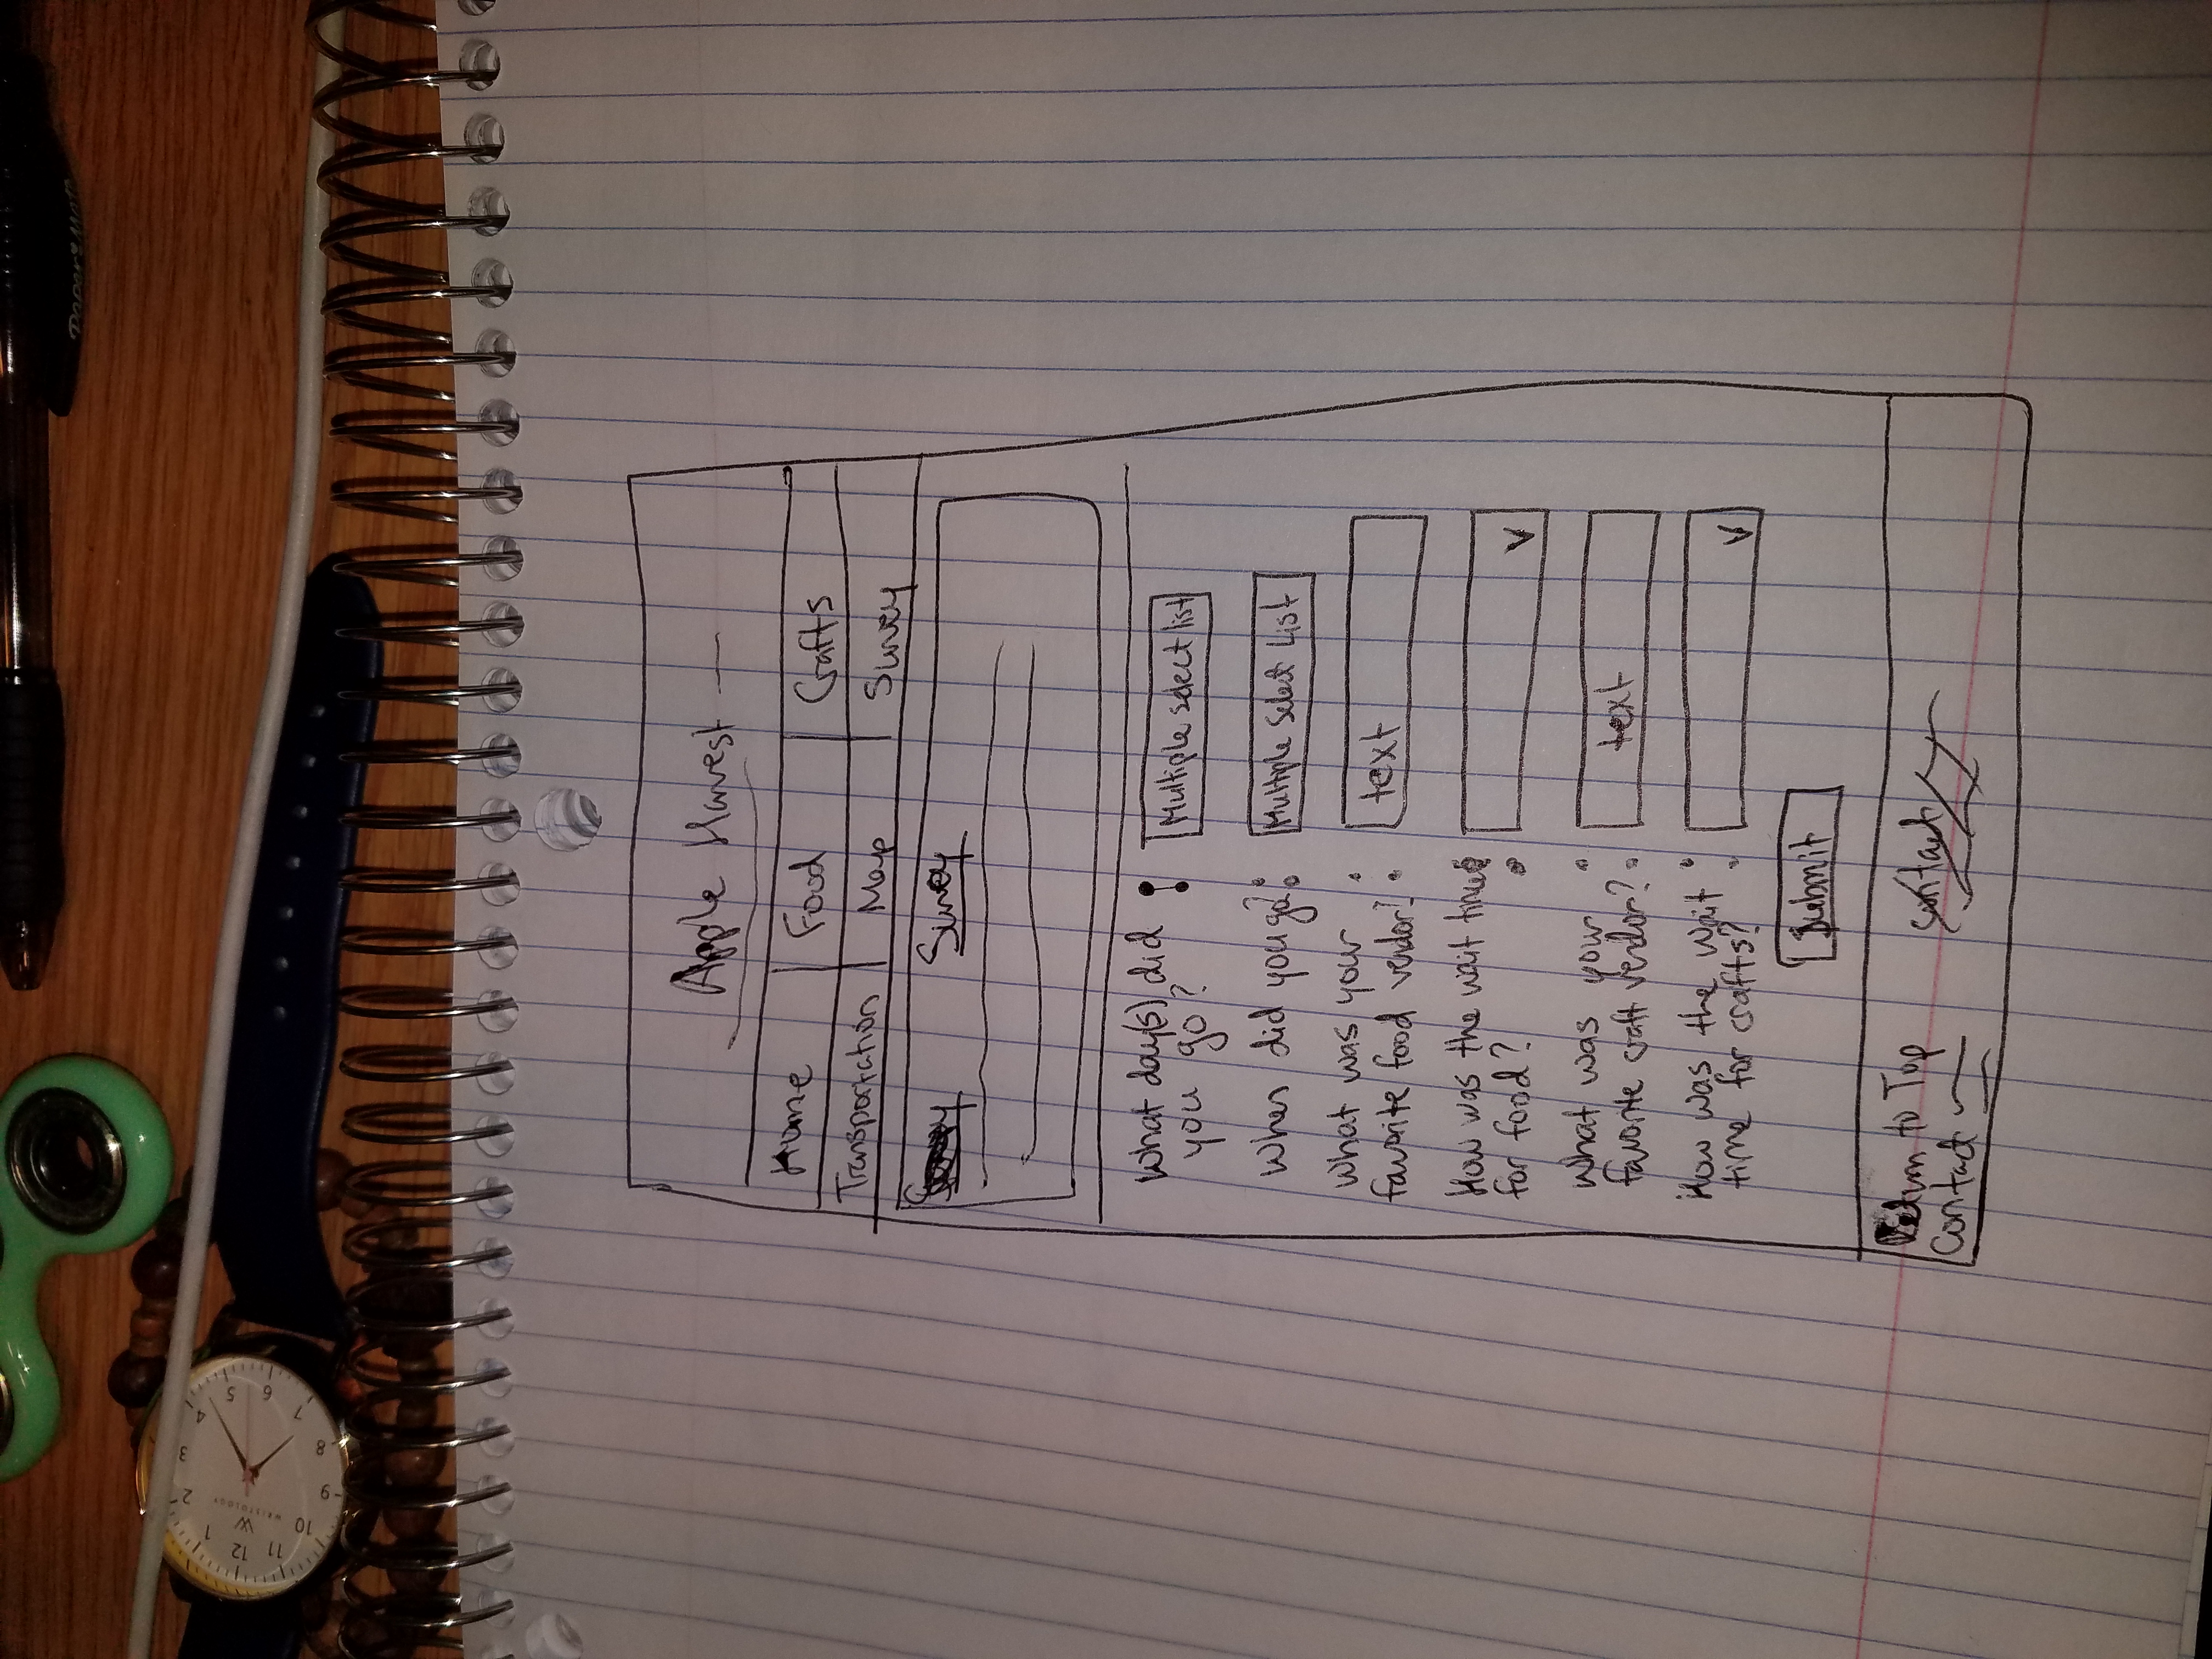 Paper Mate
1 2 3 4 5 6 7 8 9 10 11 12
W
WRISTOLOGY
Apple Harvest
Home Food Crafts
Transportation Map Survey
Survey Survey
What day(s) did
you go? : Multiple select list
When did you go? : Multiple Select List
What was your
favorite food vendor? : text
How was the wait time :
for food? V
What was your
favorite craft vendor? : text
How was the wait :
time for crafts? V
Submit
Return to Top contact
Contact